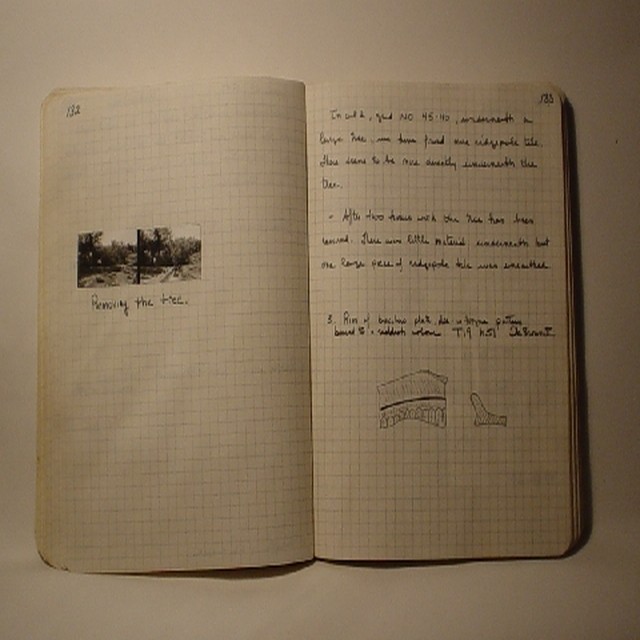 132
Removing the tree.
133
In cut 2, grid NO. 45-40, underneath a
large tree, we have found one ridgepole tile.
There seems to be more directly underneath the
tree.
- After two hours work the tree has been
removed. There was little material underneath but
one large piece of ridgepole tile was unearthed.
3. Rim of plate